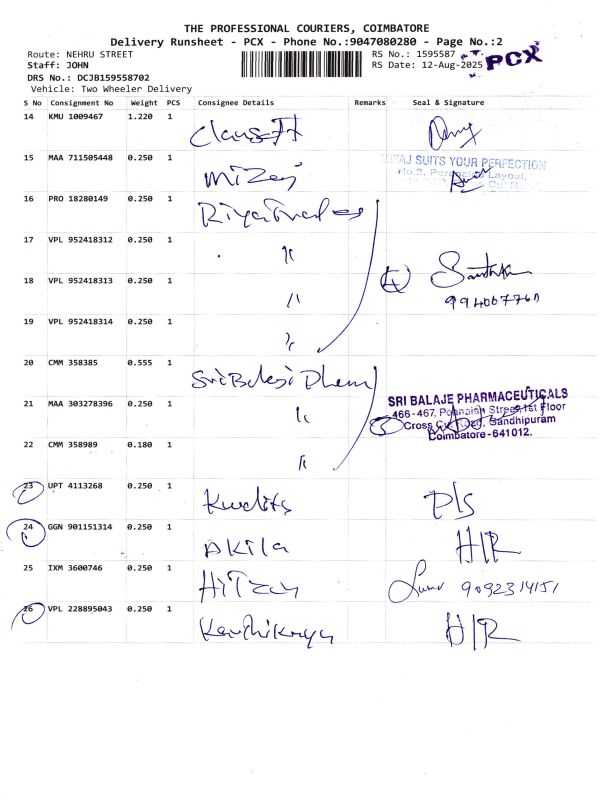 THE PROFESSIONAL COURIERS, COIMBATORE
Delivery Runsheet - PCX - Phone No.:9047080280 - Page No.:2
Route: NEHRU STREET
Staff: JOHN
DRS No.: DCJB159558702
Vehicle: Two Wheeler Delivery
RS No.: 1595587
RS Date: 12-Aug-2025
PCX
S No Consignment No Weight PCS Consignee Details Remarks Seal & Signature
14 KMU 1009467 1.220 1
15 MAA 711505448 0.250 1 Mizaj
SUITS YOUR PERFECTION
No.2, Layout,
16 PRO 18280149 0.250 1 Riya Trades
17 VPL 952418312 0.250 1 "
18 VPL 952418313 0.250 1 " 4
19 VPL 952418314 0.250 1 "
20 CMM 358385 0.555 1 Sri Balaji Pharm
21 MAA 303278396 0.250 1 " 3
SRI BALAJE PHARMACEUTICALS
466-467, Ponnaiah Street 1st Floor
Cross Cut Road, Gandhipuram
Coimbatore-641012.
22 CMM 358989 0.180 1 "
23 UPT 4113268 0.250 1 P/S
24 GGN 901151314 0.250 1 Akila H/R
25 IXM 3600746 0.250 1 9092314151
26 VPL 228895043 0.250 1 H/R